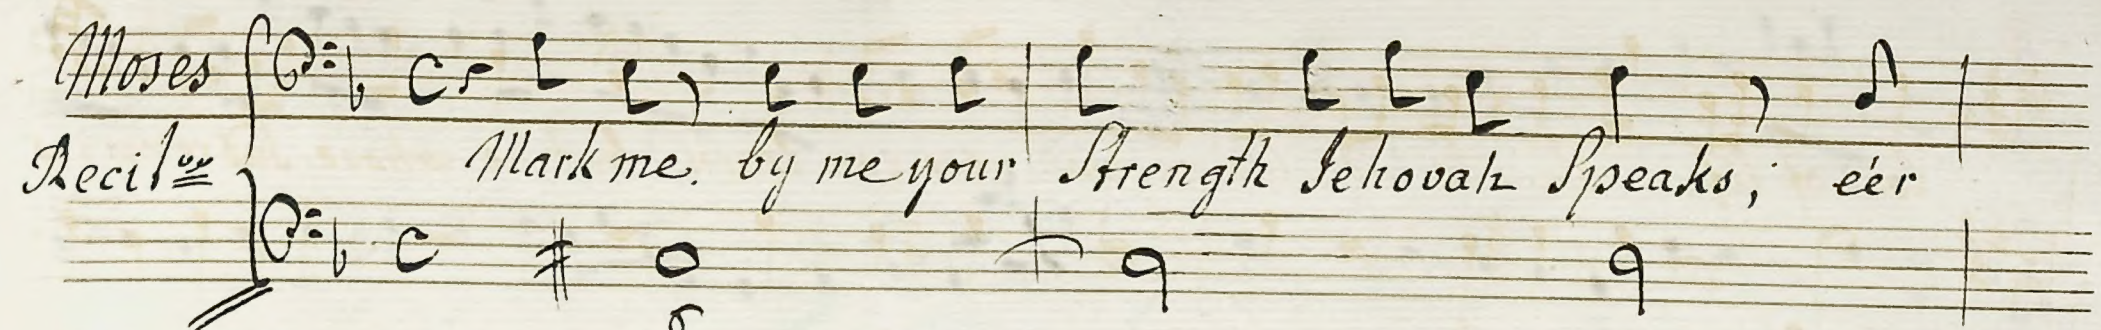 Moses
Recit.ve Mark me. by me your Strength Jehovah Speaks; e'er
6